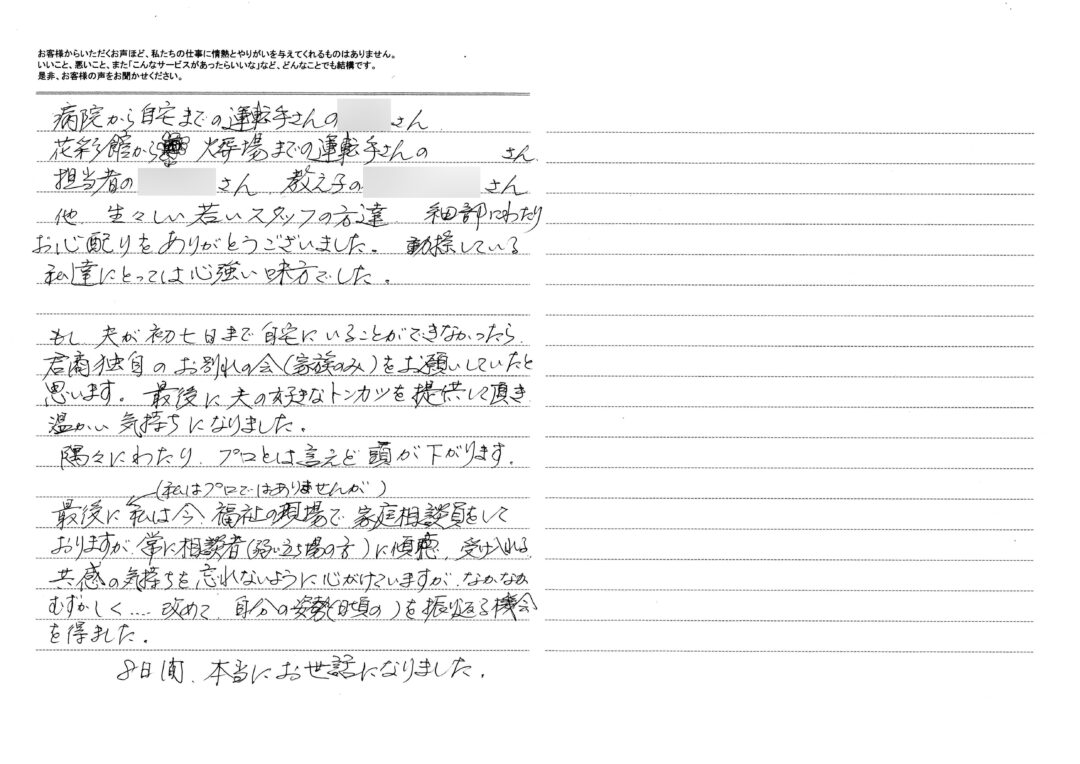 お客様からいただくお声ほど、私たちの仕事に情熱とやりがいを与えてくれるものはありません。
いいこと、悪いこと、また「こんなサービスがあったらいいな」など、どんなことでも結構です。
是非、お客様の声をお聞かせください。
病院から自宅までの運転手さんの さん
花彩館から 火葬場までの運転手さんの さん
担当者の さん、教え子の さん
他 生々しい若いスタッフの方達 細部にわたり
お心配りをありがとうございました。動揺している
私達にとっては心強い味方でした。
もし 夫が初七日まで自宅にいることができなかったら
君商独自のお別れの会(家族のみ)をお願いしていたと
思います。最後に夫の好きなトンカツを提供して頂き
温かい気持ちになりました。
隅々にわたり、プロとは言えど頭が下がります。
(私はプロではありませんが)
最後に私は今、福祉の現場で家庭相談員をして
おりますが、常に相談者(弱い立ち場の方)に傾聴、受け入れる
共感の気持ちを忘れないように心がけていますが、なかなか
むずかしく…. 改めて、自分の姿勢(日頃の)を振り返る機会
を得ました。
8日間、本当にお世話になりました。